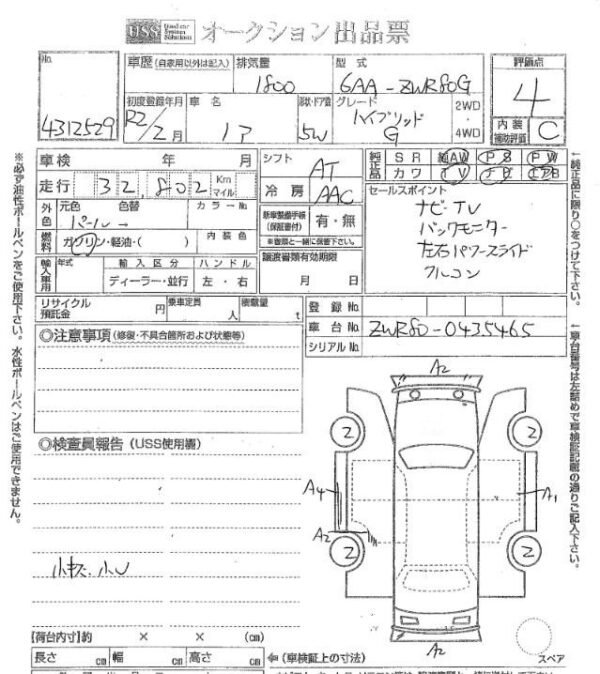 USS Used car System Solutions オークション出品票
No. 4312529
車歴 (自家用以外は記入)
排気量 1800
型式 6AA-ZWR80G
評価点 4
初度登録年月 R2/2月
車名
形状・ドア数 5W
グレード ハイブリッド G
2WD・4WD
内装補助評価 C
車検 年 月
シフト AT
純正品 SR 純AW PS PW
カワ TV
走行 32,802 Km マイル
冷房 AAC
セールスポイント
ナビ-TV
バックモニター
左右パワースライド
フルコン
外色 元色 パール 色替 カラーNo
新車整備手帳(保証書付) 有・無
※書類と一緒に保管下さい。
燃料 ガソリン・軽油・( ) 内装色
輸入車用 年式 輸入区分 ハンドル
ディーラー・並行 左・右
譲渡書類有効期限
月 日
リサイクル預託金 円
乗車定員 人
積載量 t
登録No.
車台No. ZWR80-0435465
シリアルNo.
◎注意事項 (修復・不具合個所および状態等)
◎検査員報告 (USS使用欄)
小キズ、小U
A2
2 2
A4 A1
A2
2 2
A2
スペア
【荷台内寸】約 × × (cm)
長さ cm 幅 cm 高さ cm
⇦ (車検証上の寸法)
※必ず油性ボールペンをご使用下さい。水性ボールペンはご使用できません。
←純正品に限り○をつけて下さい。
←車台番号は左詰めで車検証記載の通りご記入下さい。